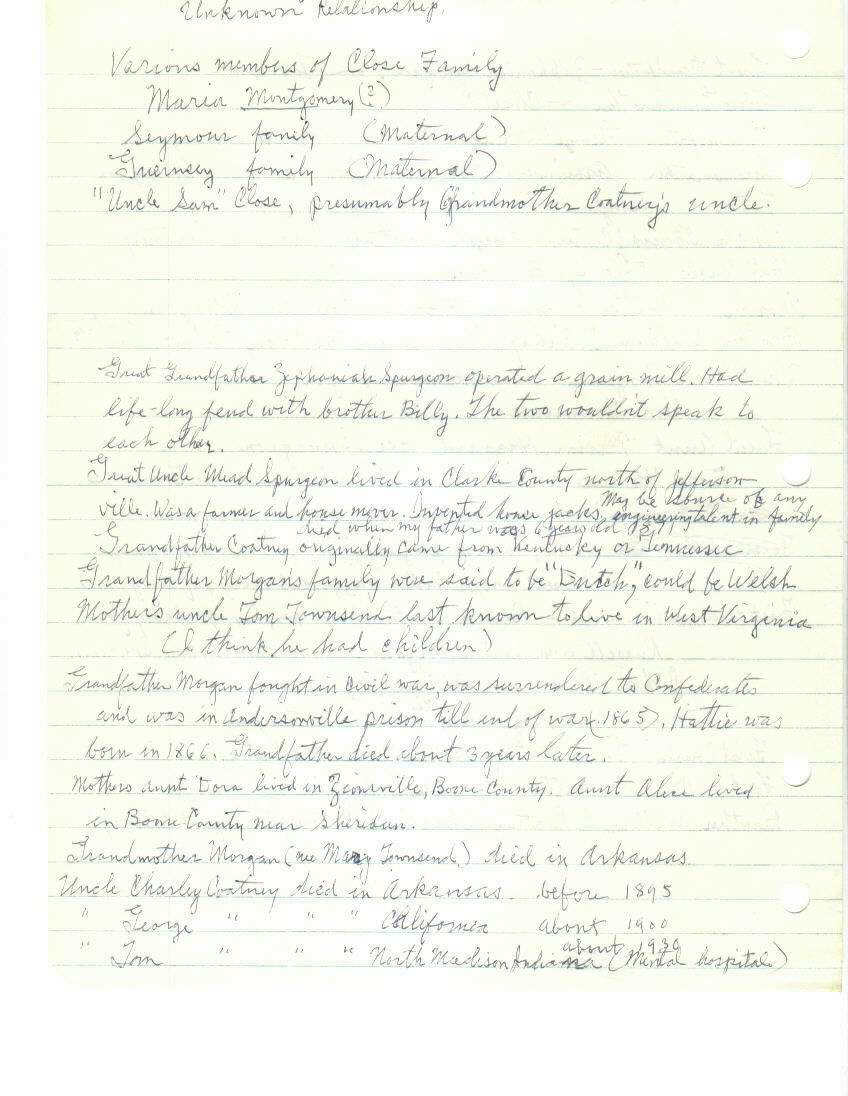 Unknown Relationship.
Various members of Close Family
Maria Montgomery (?)
Seymour family (Maternal)
Guernsey family (Maternal)
"Uncle Sam" Close, presumably Grandmother Coatney's uncle.
Great Grandfather Zephaniah Spurgeon operated a grain mill. Had
life-long feud with brother Billy. The two wouldn't speak to
each other.
Great Uncle Mead Spurgeon lived in Clarke County north of Jefferson-
ville. Was a farmer and house mover. Invented house jacks. May be source of any
engineering talent in family
died when my father was 6 years old
Grandfather Coatney originally came from Kentucky or Tennessee
Grandfather Morgan's family were said to be "Dutch," could be Welsh
Mother's uncle Tom Townsend last known to live in West Virginia
(I think he had children)
Grandfather Morgan fought in Civil war, was surrendered to Confederates
and was in Andersonville prison till end of war (1865). Hattie was
born in 1866. Grandfather died about 3 years later.
Mothers aunt Dora lived in Zionsville, Boone County. Aunt Alice lived
in Boone County near Sheridan.
Grandmother Morgan (nee Mary Townsend) died in Arkansas.
Uncle Charley Coatney died in Arkansas - before 1895
" George " " " California about 1900
" Tom " " " North Madison Indiana about 1930 (Mental hospital)